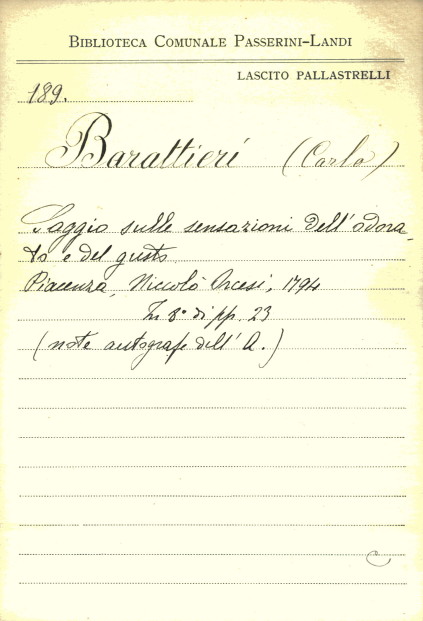 BIBLIOTECA COMUNALE PASSERINI-LANDI
LASCITO PALLASTRELLI
189.
Barattieri (Carlo)
Saggio sulle sensazioni dell'odora-
to e del gusto
Piacenza, Niccolò Orcesi, 1794
In 8° di pp. 23
(note autografe dell'A.)